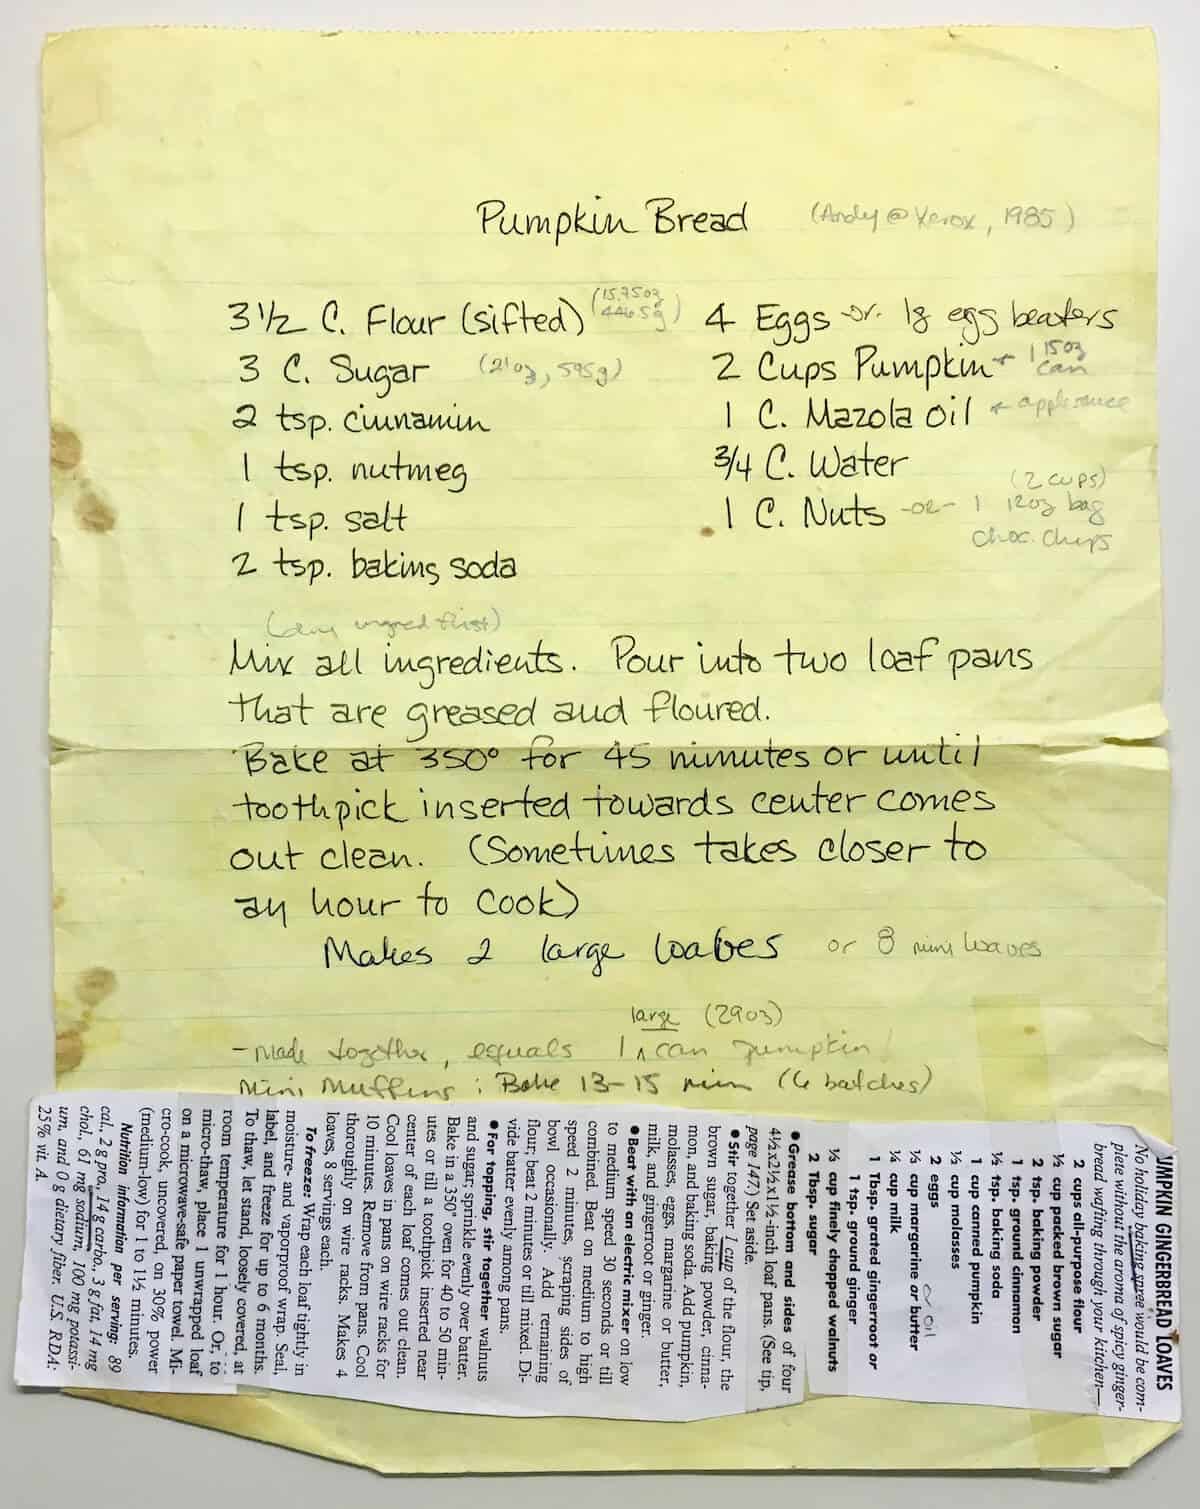 Pumpkin Bread (Andy @ Xerox, 1985)
3 1/2 C. Flour (sifted) (15.75oz 446.5g)
3 C. Sugar (21oz, 595g)
2 tsp. cinnamin
1 tsp. nutmeg
1 tsp. salt
2 tsp. baking soda
4 Eggs -or- 1g egg beaters
2 Cups Pumpkin ← 1 15oz can
1 C. Mazola oil ← applesauce
3/4 C. Water
1 C. Nuts -or- 1 12oz bag (2 cups) choc. chips
(dry ingred first)
Mix all ingredients. Pour into two loaf pans
that are greased and floured.
Bake at 350° for 45 minutes or until
toothpick inserted towards center comes
out clean. (Sometimes takes closer to
an hour to cook)
Makes 2 large loaves or 8 mini loaves
large (29oz)
- Made together, equals 1 ^ can pumpkin!
Mini Muffins: Bake 13-15 min (6 batches)
UMPKIN GINGERBREAD LOAVES
No holiday baking spree would be com-
plete without the aroma of spicy ginger-
bread wafting through your kitchen—
2 cups all-purpose flour
½ cup packed brown sugar
2 tsp. baking powder
1 tsp. ground cinnamon
½ tsp. baking soda
1 cup canned pumpkin
½ cup molasses
2 eggs
⅓ cup margarine or butter
oil
¼ cup milk
1 Tbsp. grated gingerroot or
1 tsp. ground ginger
⅓ cup finely chopped walnuts
2 Tbsp. sugar
• Grease bottom and sides of four
4½x2½x1½-inch loaf pans. (See tip,
page 147.) Set aside.
• Stir together 1 cup of the flour, the
brown sugar, baking powder, cinna-
mon, and baking soda. Add pumpkin,
molasses, eggs, margarine or butter,
milk, and gingerroot or ginger.
• Beat with an electric mixer on low
to medium speed 30 seconds or till
combined. Beat on medium to high
speed 2 minutes, scraping sides of
bowl occasionally. Add remaining
flour; beat 2 minutes or till mixed. Di-
vide batter evenly among pans.
• For topping, stir together walnuts
and sugar; sprinkle evenly over batter.
Bake in a 350° oven for 40 to 50 min-
utes or till a toothpick inserted near
center of each loaf comes out clean.
Cool loaves in pans on wire racks for
10 minutes. Remove from pans. Cool
thoroughly on wire racks. Makes 4
loaves, 8 servings each.
To freeze: Wrap each loaf tightly in
moisture- and vaporproof wrap. Seal,
label, and freeze for up to 6 months.
To thaw, let stand, loosely covered, at
room temperature for 1 hour. Or, to
micro-thaw, place 1 unwrapped loaf
on a microwave-safe paper towel. Mi-
cro-cook, uncovered, on 30% power
(medium-low) for 1 to 1½ minutes.
Nutrition information per serving: 89
cal., 2 g pro., 14 g carbo., 3 g fat, 14 mg
chol., 61 mg sodium, 100 mg potassi-
um, and 0 g dietary fiber. U.S. RDA:
25% vit. A.